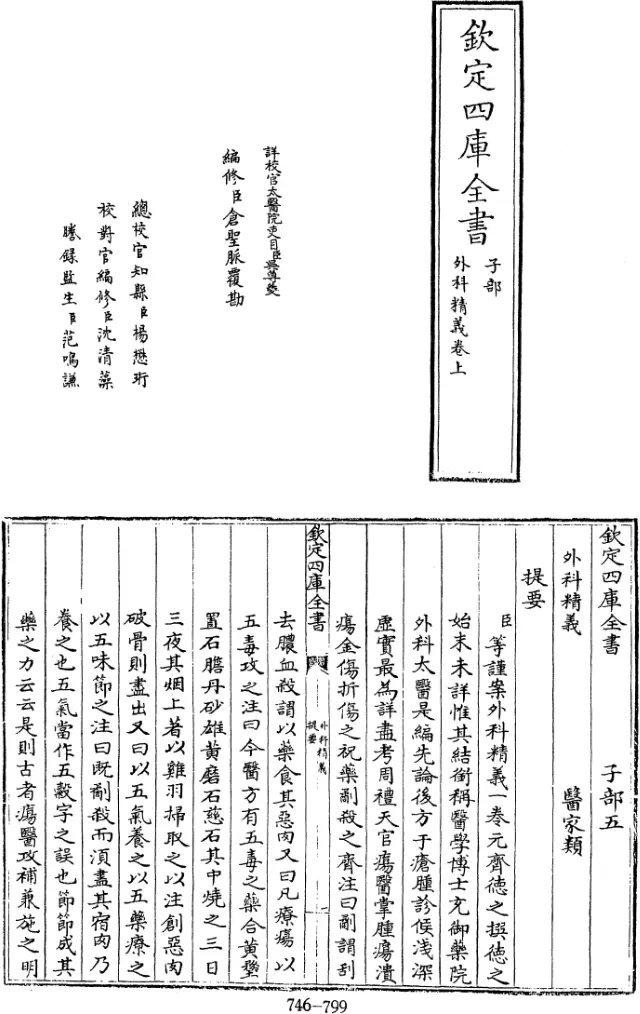 欽定四庫全書
子部
外科精義卷上
詳校官太醫院吏目臣吳尊夔
編修臣倉聖脈覆勘
總校官知縣臣楊懋珩
校對官編修臣沈清藻
謄錄監生臣范鳴謙
欽定四庫全書 子部五
外科精義 醫家類
提要
臣等謹案外科精義一卷元齊德之撰德之
始末未詳惟其結銜稱醫學博士充御藥院
外科太醫是編先論後方于瘡腫診候淺深
虛實最為詳盡考周禮天官瘍醫掌腫瘍潰
瘍金傷折傷之祝藥劀殺之齊注曰劀謂刮
欽定四庫全書
外科精義
提要
一
去膿血殺謂以藥食其惡肉又曰凡療瘍以
五毒攻之注曰今醫方有五毒之藥合黃堥
置石膽丹砂雄黃磨石慈石其中燒之三日
三夜其烟上著以雞羽掃取之以注創惡肉
破骨則盡出又曰以五氣養之以五藥療之
以五味節之注曰既劀殺而須盡其宿肉乃
養之也五氣當作五穀字之誤也節節成其
藥之力云云是則古者瘍醫攻補兼施之明
746-799